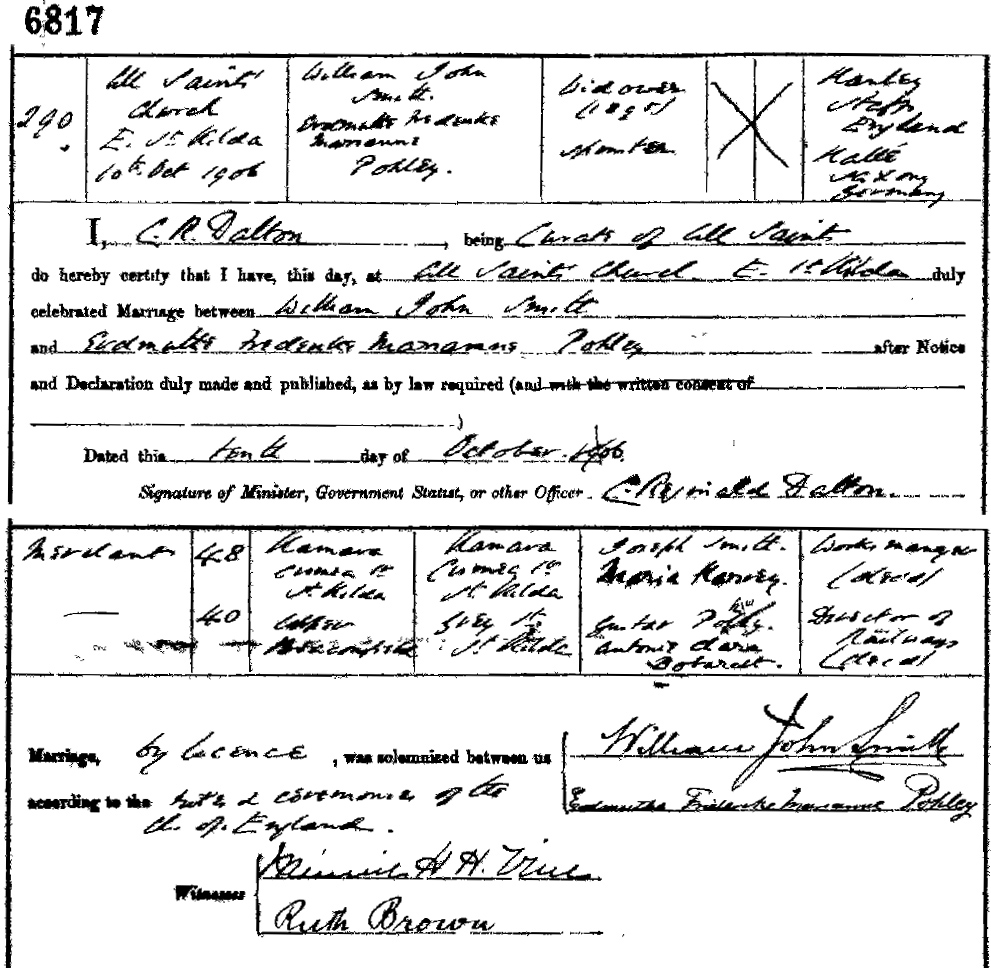 6817
290
All Saints'
Church
E. St Kilda
10th Oct 1906
William John
Smith.
Erdmuthe Frederike
Marianne
Pohley.
Widower
(1895)
Spinster
Hanley
Staffs
England
Halle
Saxony
Germany
I, C. R. Dalton, being Curate of All Saints
do hereby certify that I have, this day, at All Saints' Church E. St Kilda duly
celebrated Marriage between William John Smith
and Erdmuthe Frederike Marianne Pohley after Notice
and Declaration duly made and published, as by law required (and with the written consent of
)
Dated this tenth day of October 1906.
Signature of Minister, Government Statist, or other Officer. C. Reginald Dalton.
Merchant
48
Kamara
Crimea St
St Kilda
Kamara
Crimea St
St Kilda
Joseph Smith.
Maria Harvey.
Works manager
(decd)
—
40
Upper
Beaconsfield
Grey St.
St Kilda
Gustav Pohley.
Antonie Clara
Director of
Railways
(decd)
Marriage, by licence, was solemnized between us
according to the rites & ceremonies of the
Ch. of England.
William John Smith
Erdmuthe Friderike Marianne Pohley
Witnesses
Minnie H. H. Vines
Ruth Brown